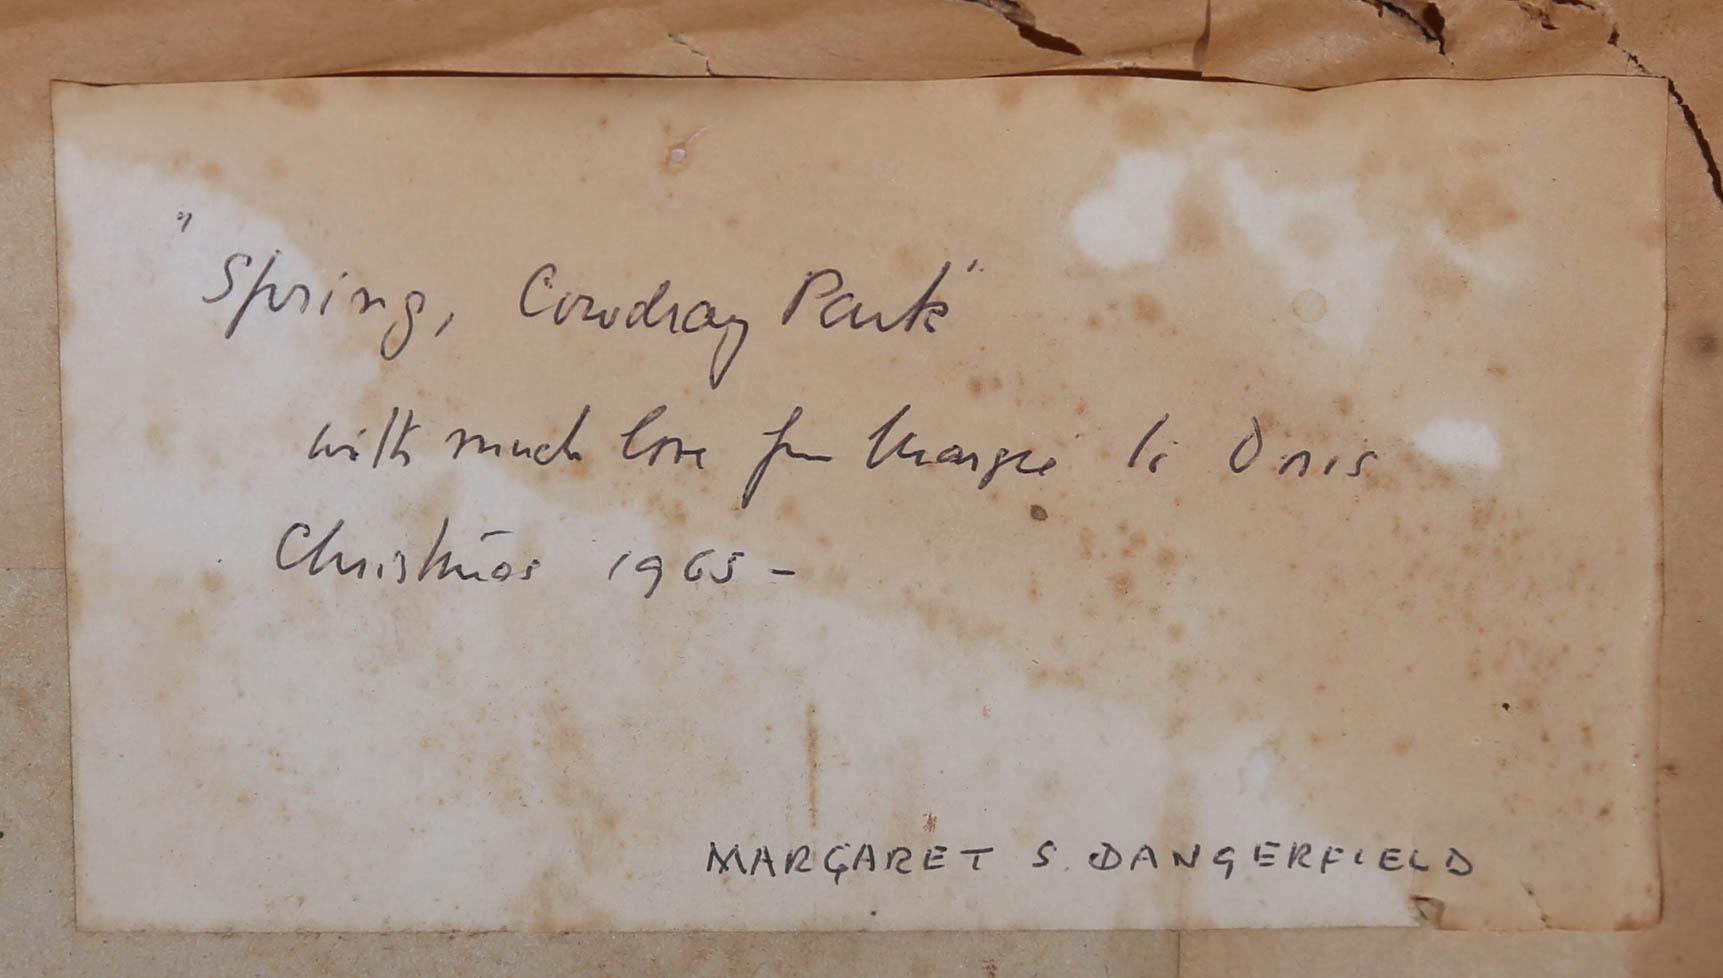 "Spring, Cowdray Park"
with much love from Margie to Doris
Christmas 1965 –
MARGARET S. DANGERFIELD